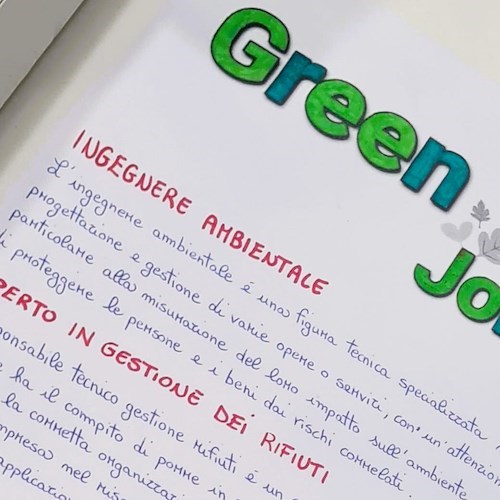 Green
Jo
INGEGNERE AMBIENTALE
L'ingegnere ambientale è una figura tecnica specializzata
progettazione e gestione di varie opere o servizi, con un'attenzio
particolare alla misurazione del loro impatto sull'ambiente
di proteggere le persone e i beni dai rischi correlati
PERTO IN GESTIONE DEI RIFIUTI
ponsabile tecnico gestione rifiuti è un
e ha il compito di porre in
la corretta organizzaz
mpresa nel ris
applicazio